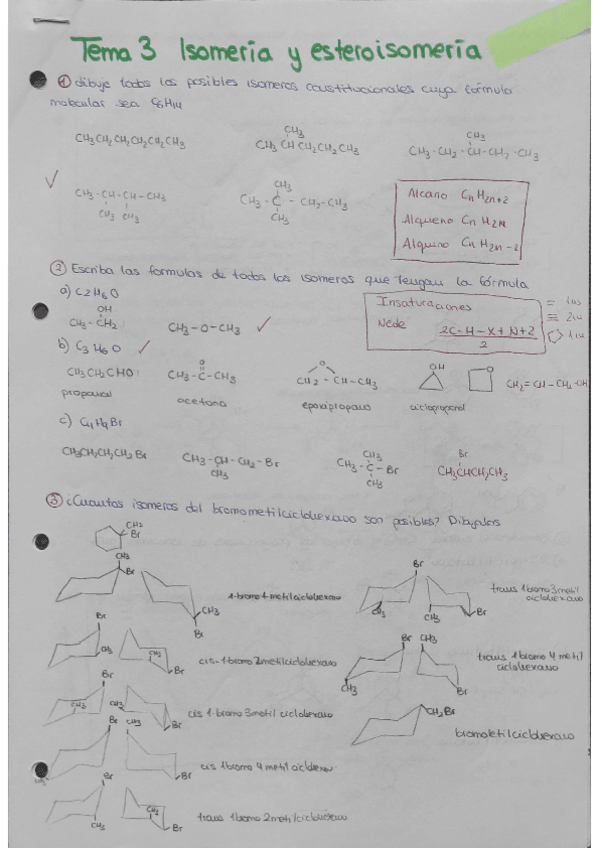 Tema 3 Isomería y esteroisomería
① dibuje todos los posibles isomeros constitucionales cuya formula
molecular sea C6H14
CH3CH2CH2CH2CH2CH3
CH3
CH3CHCH2CH2CH3
CH3
CH3-CH2-CH-CH2-CH3
CH3-CH-CH-CH3
CH3 CH3
CH3
CH3-C-CH2-CH3
CH3
Alcano CnH2n+2
Alqueno CnH2n
Alquino CnH2n-2
② Escriba las formulas de todos los isomeros que tengan la fórmula
a) C2H6O
OH
CH3-CH2
CH3-O-CH3
Insaturaciones
Nede
2C-H-X+N+2
2
= 1in
≡ 2in
1in
b) C3H6O
CH3CH2CHO
propanal
O
CH3-C-CH3
acetona
O
CH2-CH-CH3
epoxipropano
OH
ciclopropanol
O
CH2=CH-CH2-OH
c) C4H9Br
CH3CH2CH2CH2Br
CH3-CH-CH2-Br
CH3
CH3
CH3-C-Br
CH3
Br
CH3CHCH2CH3
③ ¿Cuantos isomeros del bromometilciclohexano son posibles? Dibujalos
CH3
Br
CH3
Br
CH3
Br
1-bromo 1 metilciclohexano
Br
CH3
CH3
Br
trans 1bromo 3metil
ciclohexano
Br
CH3
CH3
Br
cis-1bromo 2metilciclohexano
Br
CH3
CH3
Br
trans 1bromo 4 metil
ciclohexano
Br
CH3
CH3
Br
cis 1-bromo 3metil ciclohexano
CH2Br
bromometilciclohexano
Br
CH3
Br
cis 1bromo 4 metil ciclohexano
Br
CH3
CH3
Br
trans 1bromo 2metilciclohexano